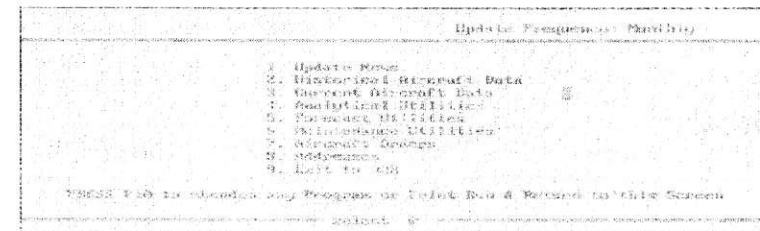 Update Frequency: Monthly
1. Update News
2. Historical Aircraft Data
3. Current Aircraft Data
4. Analytical Utilities
5. Forecast Utilities
6. Maintenance Utilities
7. Aircraft Groups
8. Addresses
9. Exit to
PRESS F10 to abandon any Program or Print Run & Return to this Screen
Select